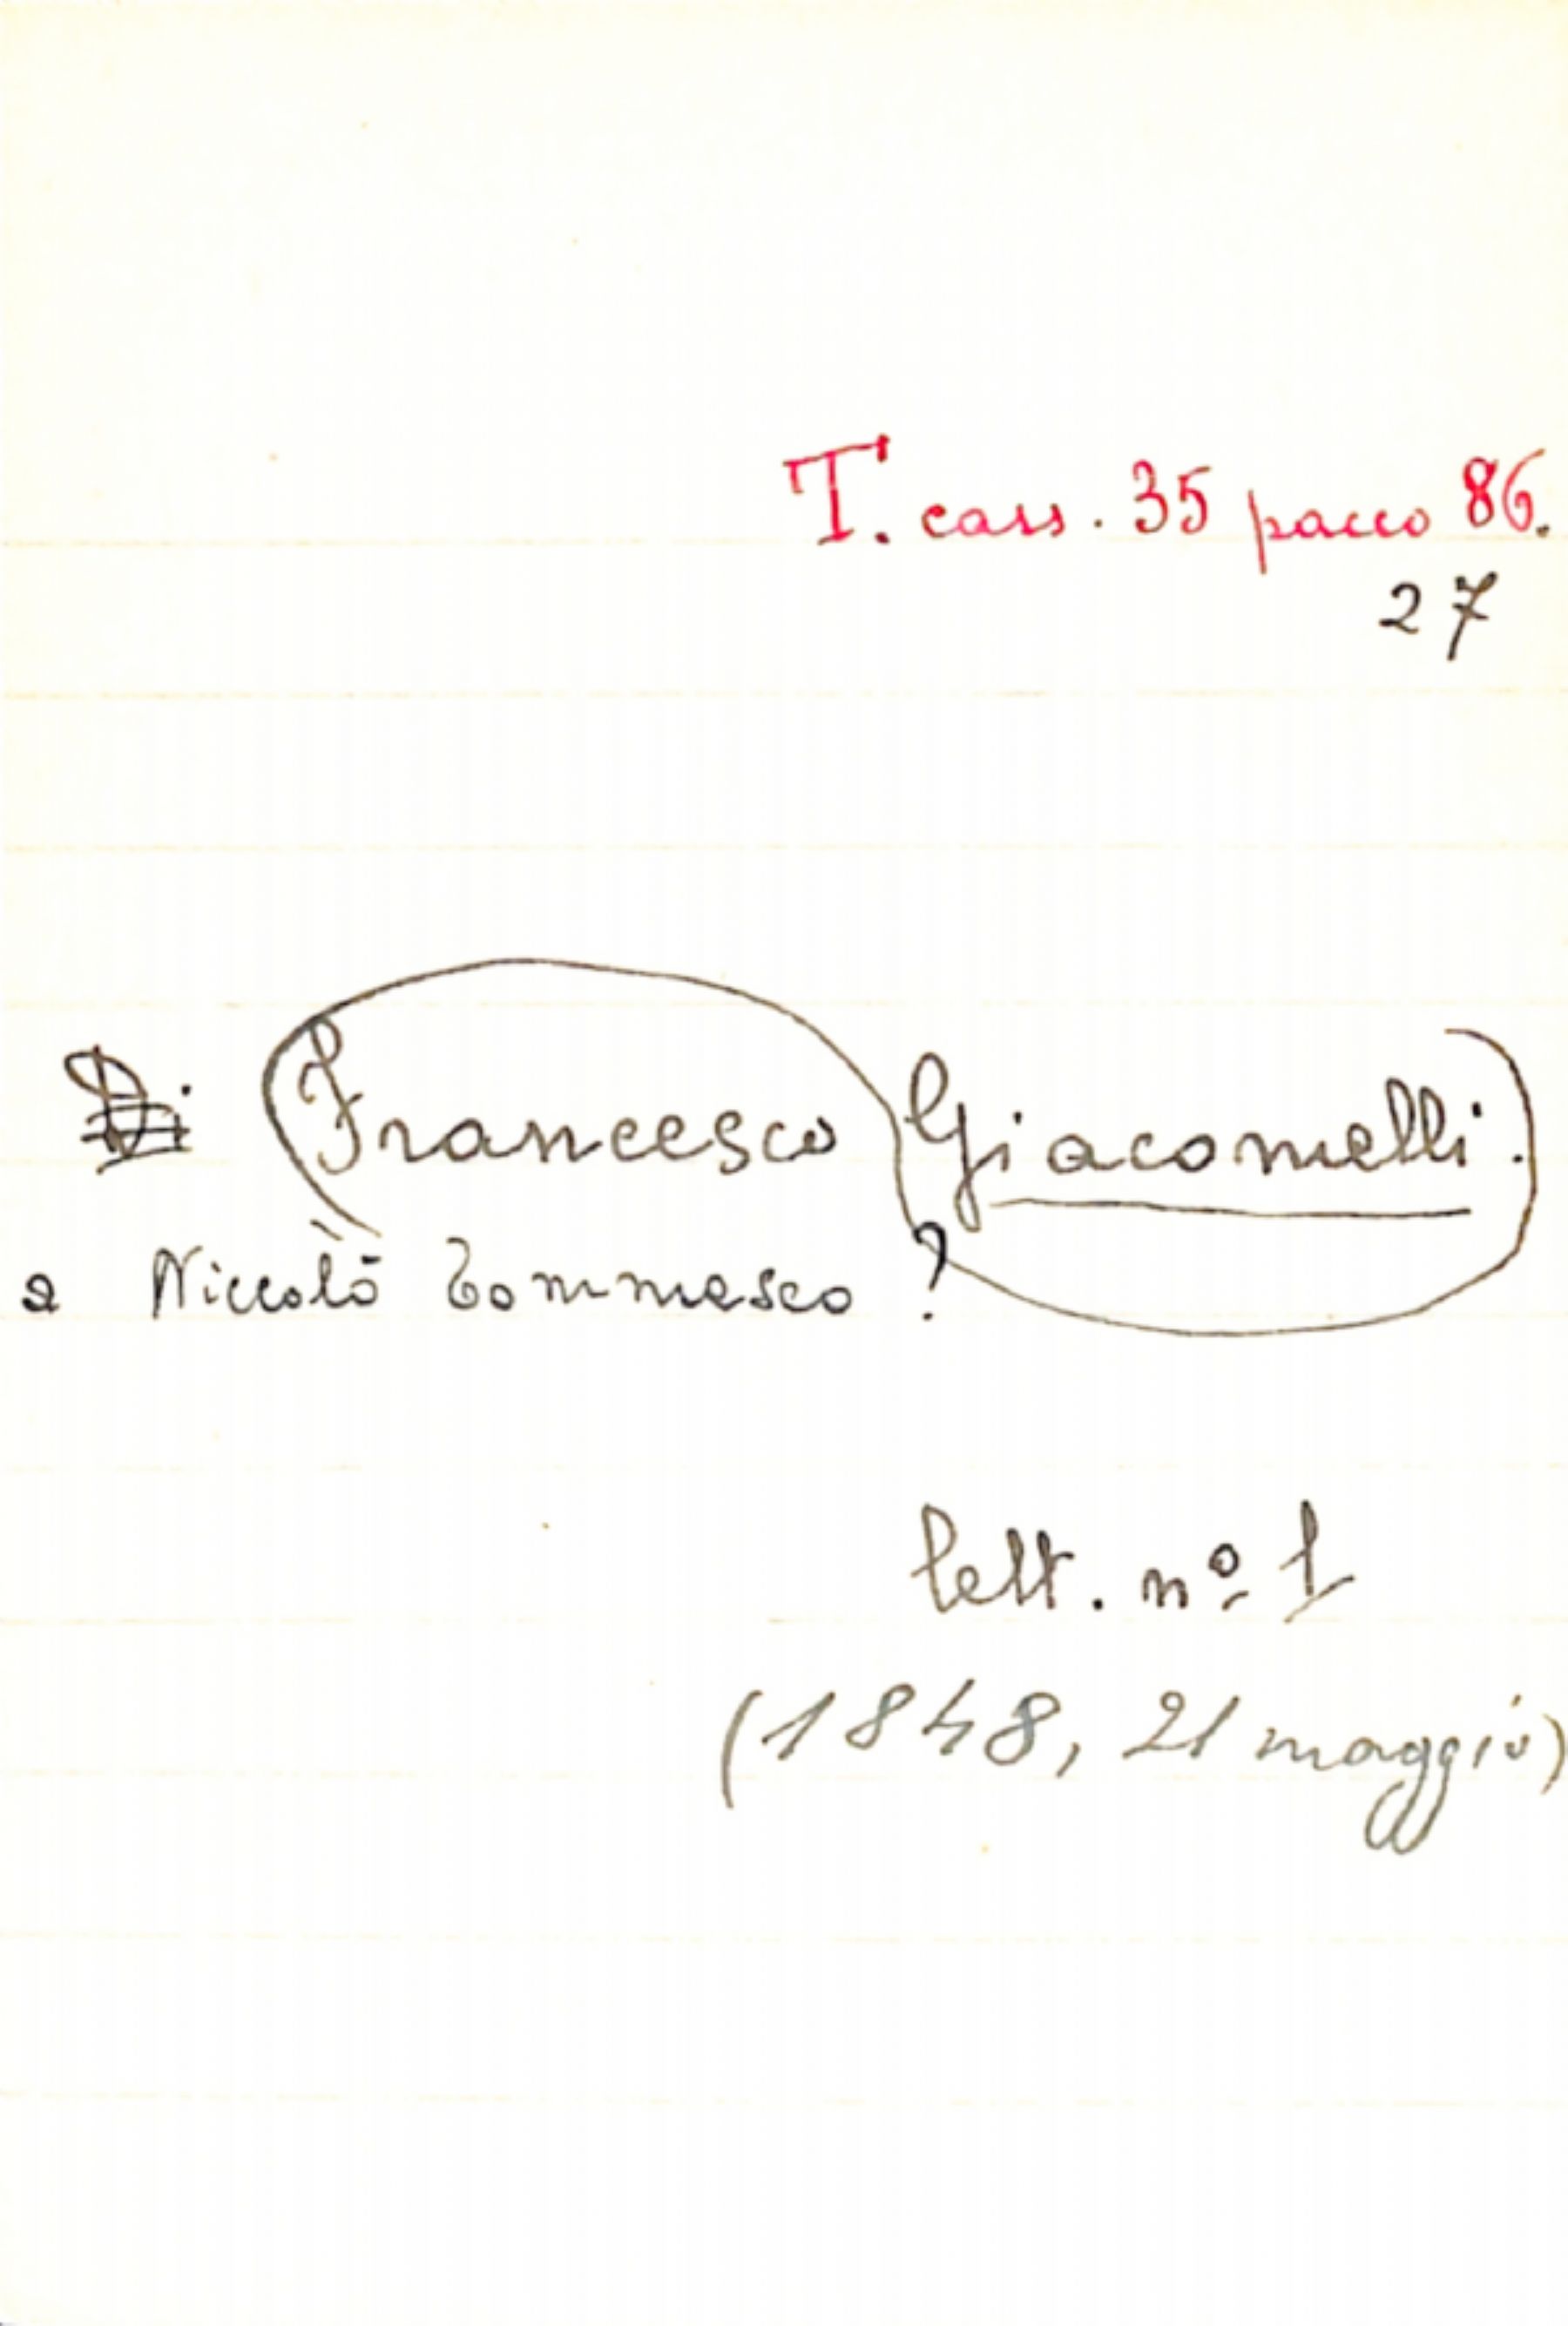 T. cass. 35 pacco 86.
27
Di Francesco Giacomelli.
a Niccolò Tommaseo ?
lett. nº 1
(1848, 21 maggio)